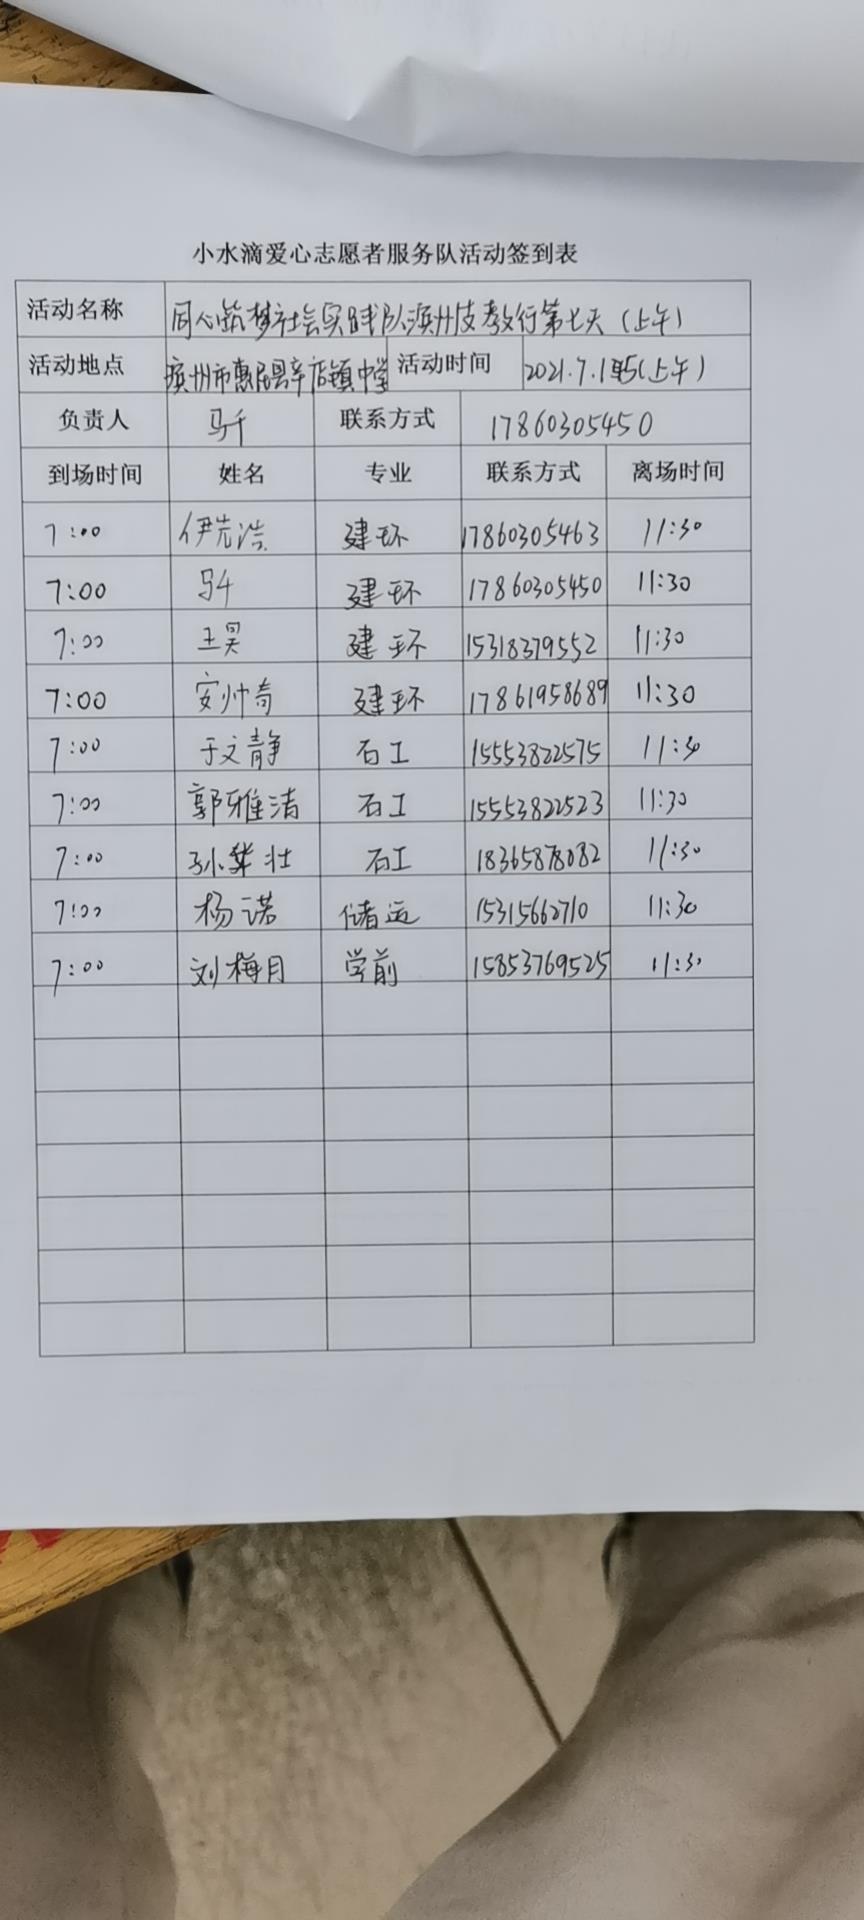 小水滴爱心志愿者服务队活动签到表
活动名称 同心筑梦社会实践队滨州支教行第七天（上午）
活动地点 滨州市惠民县辛店镇中学 活动时间 2021.7.15(上午)
负责人 马千 联系方式 17860305450
到场时间 姓名 专业 联系方式 离场时间
7:00 伊先浩 建环 17860305463 11:30
7:00 马千 建环 17860305450 11:30
7:00 王昊 建环 15318379552 11:30
7:00 安帅奇 建环 17861958689 11:30
7:00 于文静 石工 15553822575 11:30
7:00 郭雅洁 石工 15553822523 11:30
7:00 孙 壮 石工 18365878082 11:30
7:00 杨诺 储运 15315662710 11:30
7:00 刘梅月 学前 15853769525 11:30